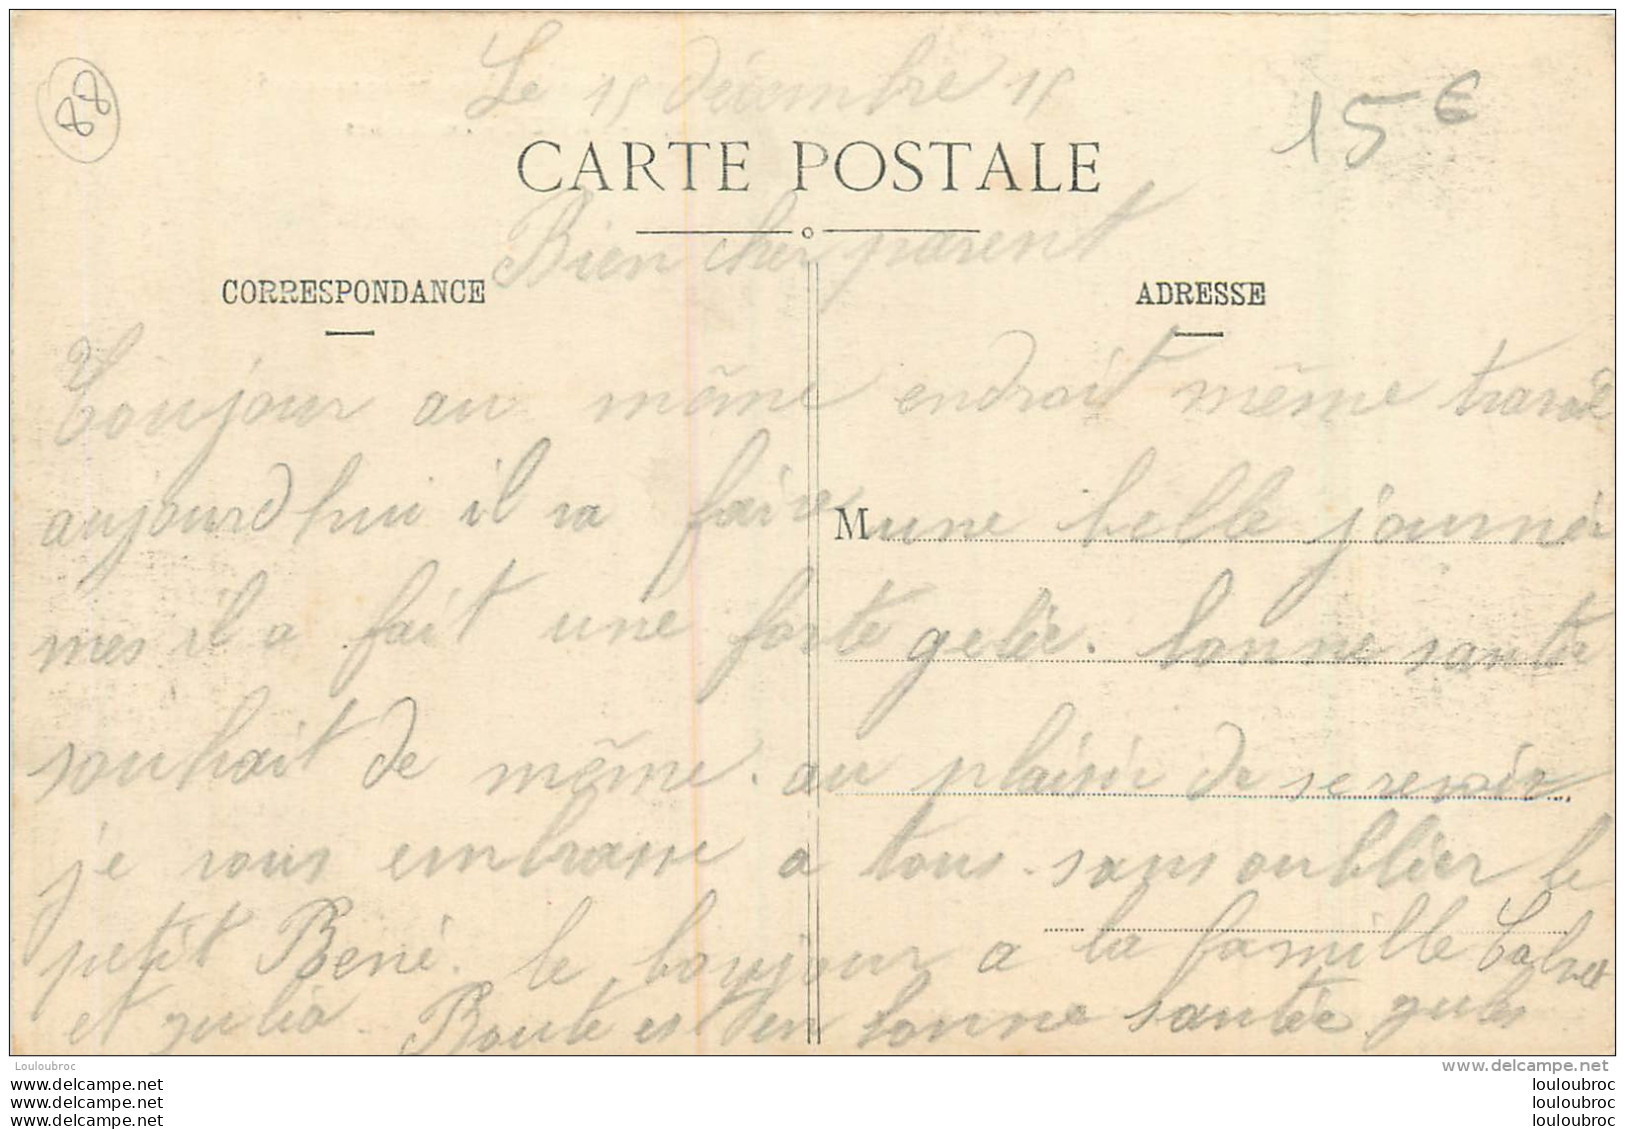 88
Le 15 décembre 15
15 €
CARTE POSTALE
Bien cher parent
CORRESPONDANCE
ADRESSE
Toujour au même endroit même travail
aujourd hui il va faire M une belle journée
mes il a fait une forte gelée. bonne santée
souhait de même. au plaisir de se revoir
je vous embrasse a tous. sans oublier le
petit René. le boujour a la famille
et julia. Route est en bonne santée jules
Louloubroc
www.delcampe.net
www.delcampe.net
www.delcampe.net
www.delcampe.net
louloubroc
louloubroc
louloubroc